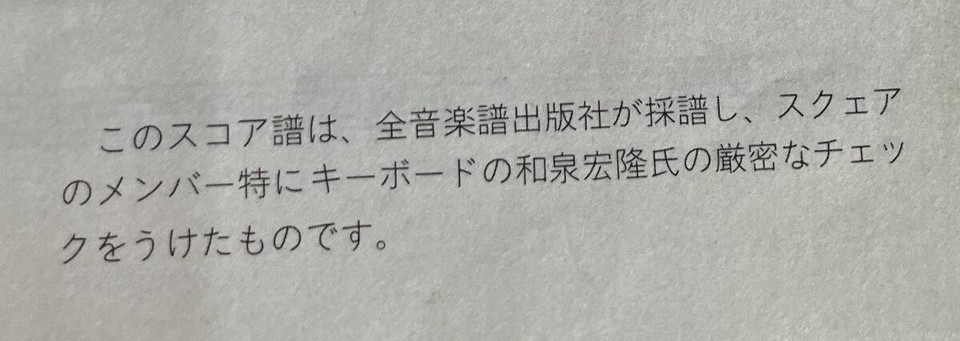 このスコア譜は、全音楽譜出版社が採譜し、スクェア
のメンバー特にキーボードの和泉宏隆氏の厳密なチェッ
クをうけたものです。